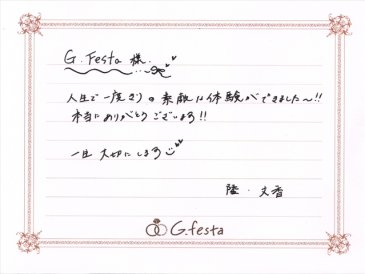 G.Festa 様.
人生で一度きりの素敵な体験ができました〜!!
本当にありがとうございます!!
一生大切にします
陸・文香
G.festa